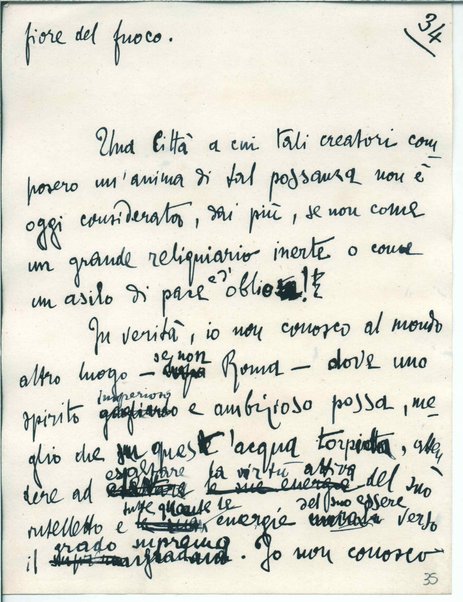 34
fiore del fuoco.
Una Città a cui tali creatori com
posero un'anima di tal possanza non è
oggi considerata, dai più, se non come
un grande reliquiario inerte o come
un asilo di pace e d'oblio!
In verità, io non conosco al mondo
altro luogo — se non Roma — dove uno
spirito imperioso e ambizioso possa, me
glio che su quest'acqua torpida, atten
dere ad esaltare la virtù attiva del suo
intelletto e tutte quante le energie del suo essere verso
il grado supremo. Io non conosco
35